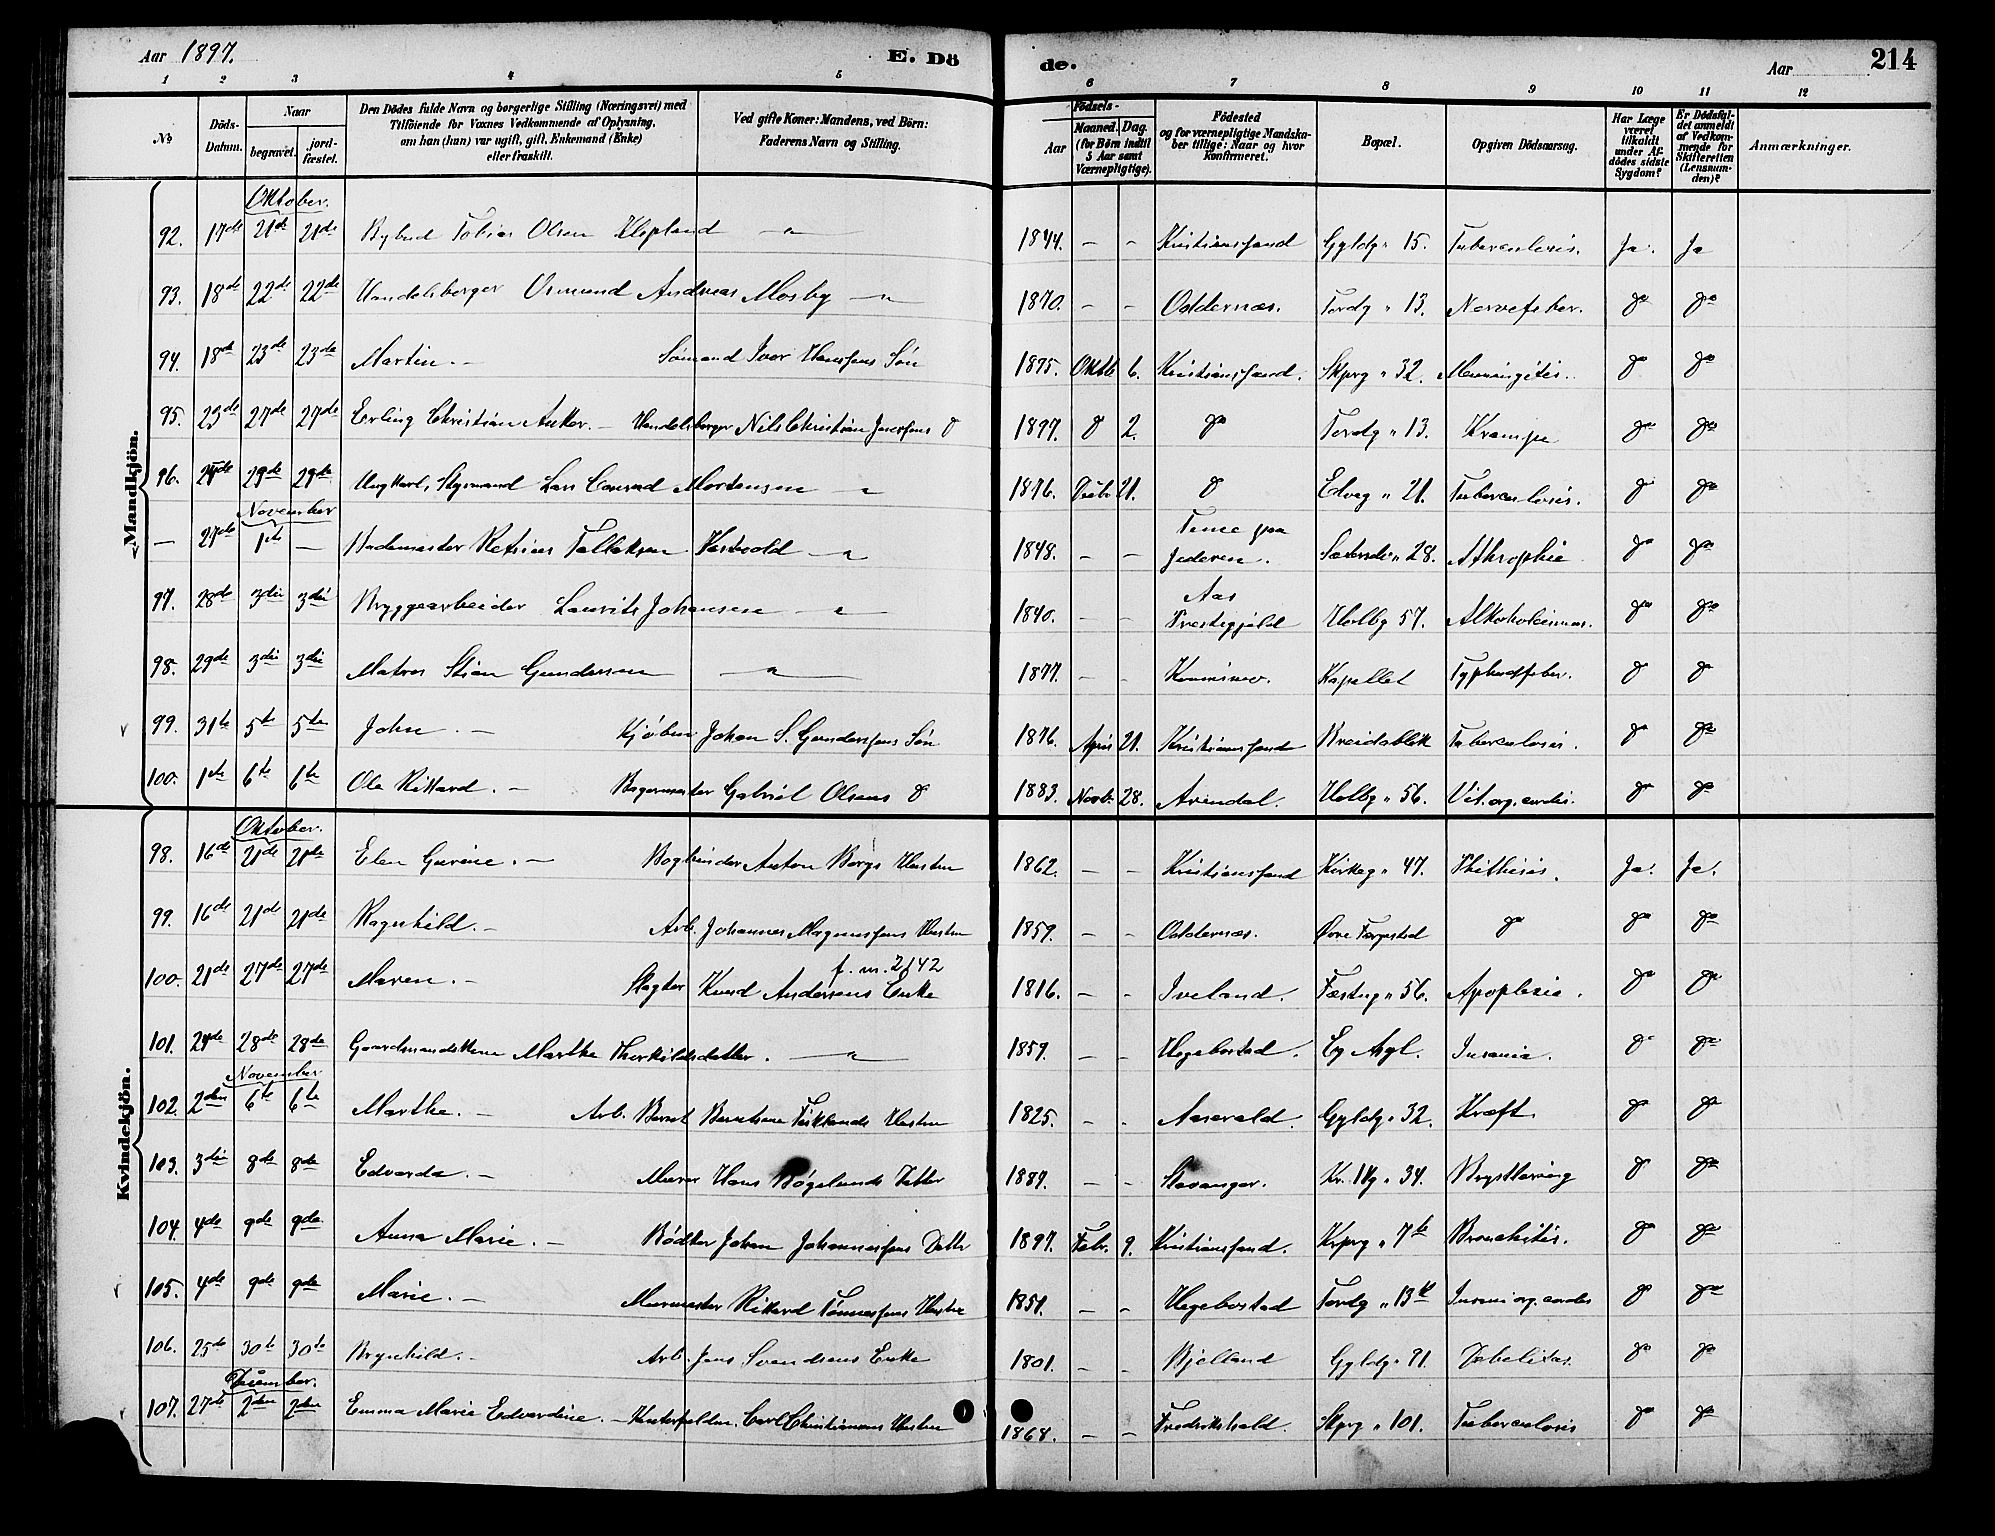 Aar 1897. E. Dö de. Aar 214
1 2 3 4 5 6 7 8 9 10 11 12
No Döds-Datum. Naar begravet. jord-fæstet. Den Dödes fulde Navn og borgerlige Stilling (Næringsvei) med Tilföiende for Voxnes Vedkommende af Oplysning, om han (hun) var ugift, gift, Enkemand (Enke) eller fraskilt. Ved gifte Koner: Mandens, ved Börn: Faderens Navn og Stilling. Födsels- Aar Maaned. Dag. (for Börn indtil 5 Aar samt Værnepligtige). Födested og for værnepligtige Mandskaber tillige: Naar og hvor Konfirmeret. Bopæl. Opgiven Dödsaarsag. Har Læge været tilkaldt under Afdödes sidste Sygdom? Er Dödsfaldet anmeldt af Vedkommende for Skifteretten (Lensmanden)? Anmærkninger.
Mandkjön.
Oktober.
92. 17de 21de 21de Bybud Tobias Olsen Klepland — " — 1844. – – Kristianssand Gyldg " 15. Tuberculosis. Ja. Ja
93. 18de 22de 22de Handelsborger Osmund Andreas Mosby — " — 1870. – – Oddernæs. Tordg " 13. Nervefeber. do do
94. 18de 23de 23de Martin. – Sømand Iver Hansens Søn 1875. Oktb 6. Kristianssand. Skprg " 32. Menningitis. do do
95. 23de 27de 27de Erling Christian Anker. – Handelsborger Nils Christian do 1897. do 2. do Tordg " 13. Krampe do do
96. 29de 29de Styrmand Lars Conrad Mortensen — " 1876. 21. do Edveg " 21. Tuberculosis. do do
November
— 27de 1ste — Tallaksen — " 1848. – – Time paa Jederen. " 28. Athrophie do do
97. 28de 3die 3die Bryggearbeider Laurits Johansen — " — 1840. – – Aas Præstegjeld Holbg 57. Alkoholismus. do do
98. 29de 3die 3die Matros Stian Gundersen — " — 1877. – – Kapellet Typhusfeber. do do
99. 31te 5te 5te John. – Kjøbm Johan S. Gundersens Søn 1876. April 21. Kristianssand Breidablik Tuberculosis. do do
100. 1ste 6te 6te Ole Rikard. – Bagermester Gabriel Olsens do 1883. Novb. 28. Arendal. Holbg " 56. Vit. org. cordis. do do
Kvindekjön.
Oktober.
98. 16de 21de 21de Elen Gurine. – Bogbinder Anton Bergs Hustru 1862. – – Kristianssand Kirkeg " 47. Phthisis. Ja. Ja.
99. 16de 21de 21de Ragnhild. – Arb. Johannes Magnussens Hustru 1859. – – Oddernæs. Øvre do do do
100. 21de 27de 27de Maren. – Slagter Knud Andersens Enke f. m. 2/42 1816. – – Iveland. Fæstng " 56. Apoplexia. do do
101. 28de 28de Gaardmandskone Marthe Therkildsdatter. — " — 1859. – – Hegebostad. Eg Asyl. Insania. do do
November
102. 2den 6te 6te Marthe. – Arb. Berent Berntsens Hustru 1825. – – Aaserald. Gyldg " 32. Kræft. do do
103. 3die 8de 8de Edvarda. – Murer Hans Bøgelunds Datter 1889. – – Stavanger. Kr. IVg " 34. do do
104. 4de 9de 9de Anna Marie. – Bødker Johan Johannessens Datter 1897. Febr. 9. Kristianssand. " 7de Bronchitis. do do
105. 4de 9de 9de Marie. – Murmester Rikard Tønnessens Hustru 1851. – – Hegebostad Tordg " 13de cordis do do
106. 25de 30te 30te Brynhild. – Arb. Jens Svendsens Enke 1801. – – Bjelland Gyldg " 91. Debelitas. do do
December.
107. 27de 2den 2den Emma Marie Edvardine. – Carl Christiansens Hustru 1868. – – Fredrikshald. Skprg " 101. Tuberculosis do do